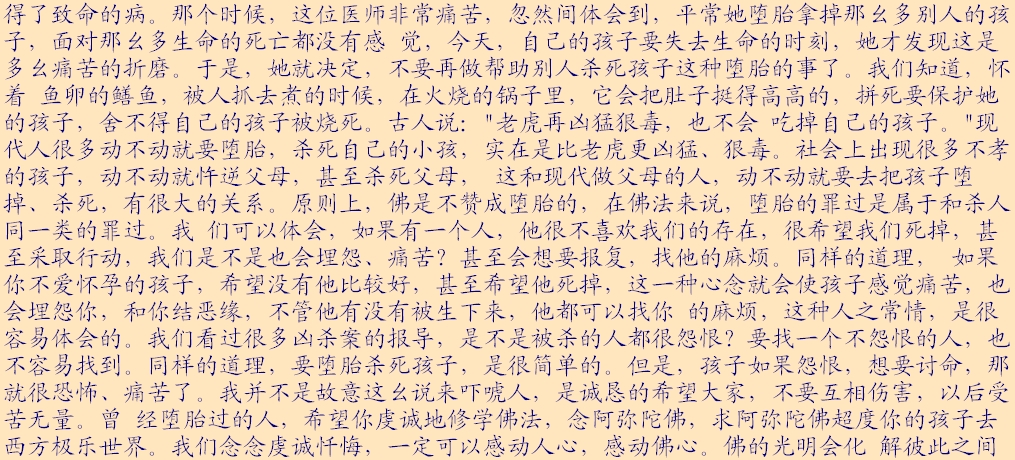 得了致命的病。那个时候，这位医师非常痛苦，忽然间体会到，平常她堕胎拿掉那么多别人的孩
子，面对那么多生命的死亡都没有感 觉，今天，自己的孩子要失去生命的时刻，她才发现这是
多么痛苦的折磨。于是，她就决定，不要再做帮助别人杀死孩子这种堕胎的事了。我们知道，怀
着 鱼卵的鳝鱼，被人抓去煮的时候，在火烧的锅子里，它会把肚子挺得高高的，拼死要保护她
的孩子，舍不得自己的孩子被烧死。古人说："老虎再凶猛狠毒，也不会 吃掉自己的孩子。"现
代人很多动不动就要堕胎，杀死自己的小孩，实在是比老虎更凶猛、狠毒。社会上出现很多不孝
的孩子，动不动就忤逆父母，甚至杀死父母， 这和现代做父母的人，动不动就要去把孩子堕
掉、杀死，有很大的关系。原则上，佛是不赞成堕胎的，在佛法来说，堕胎的罪过是属于和杀人
同一类的罪过。我 们可以体会，如果有一个人，他很不喜欢我们的存在，很希望我们死掉，甚
至采取行动，我们是不是也会埋怨、痛苦？甚至会想要报复，找他的麻烦。同样的道理， 如果
你不爱怀孕的孩子，希望没有他比较好，甚至希望他死掉，这一种心念就会使孩子感觉痛苦，也
会埋怨你，和你结恶缘，不管他有没有被生下来，他都可以找你 的麻烦，这种人之常情，是很
容易体会的。我们看过很多凶杀案的报导，是不是被杀的人都很怨恨？要找一个不怨恨的人，也
不容易找到。同样的道理，要堕胎杀死孩子，是很简单的。但是，孩子如果怨恨，想要讨命，那
就很恐怖、痛苦了。我并不是故意这么说来吓唬人，是诚恳的希望大家，不要互相伤害，以后受
苦无量。曾 经堕胎过的人，希望你虔诚地修学佛法，念阿弥陀佛，求阿弥陀佛超度你的孩子去
西方极乐世界。我们念念虔诚忏悔，一定可以感动人心，感动佛心。佛的光明会化 解彼此之间